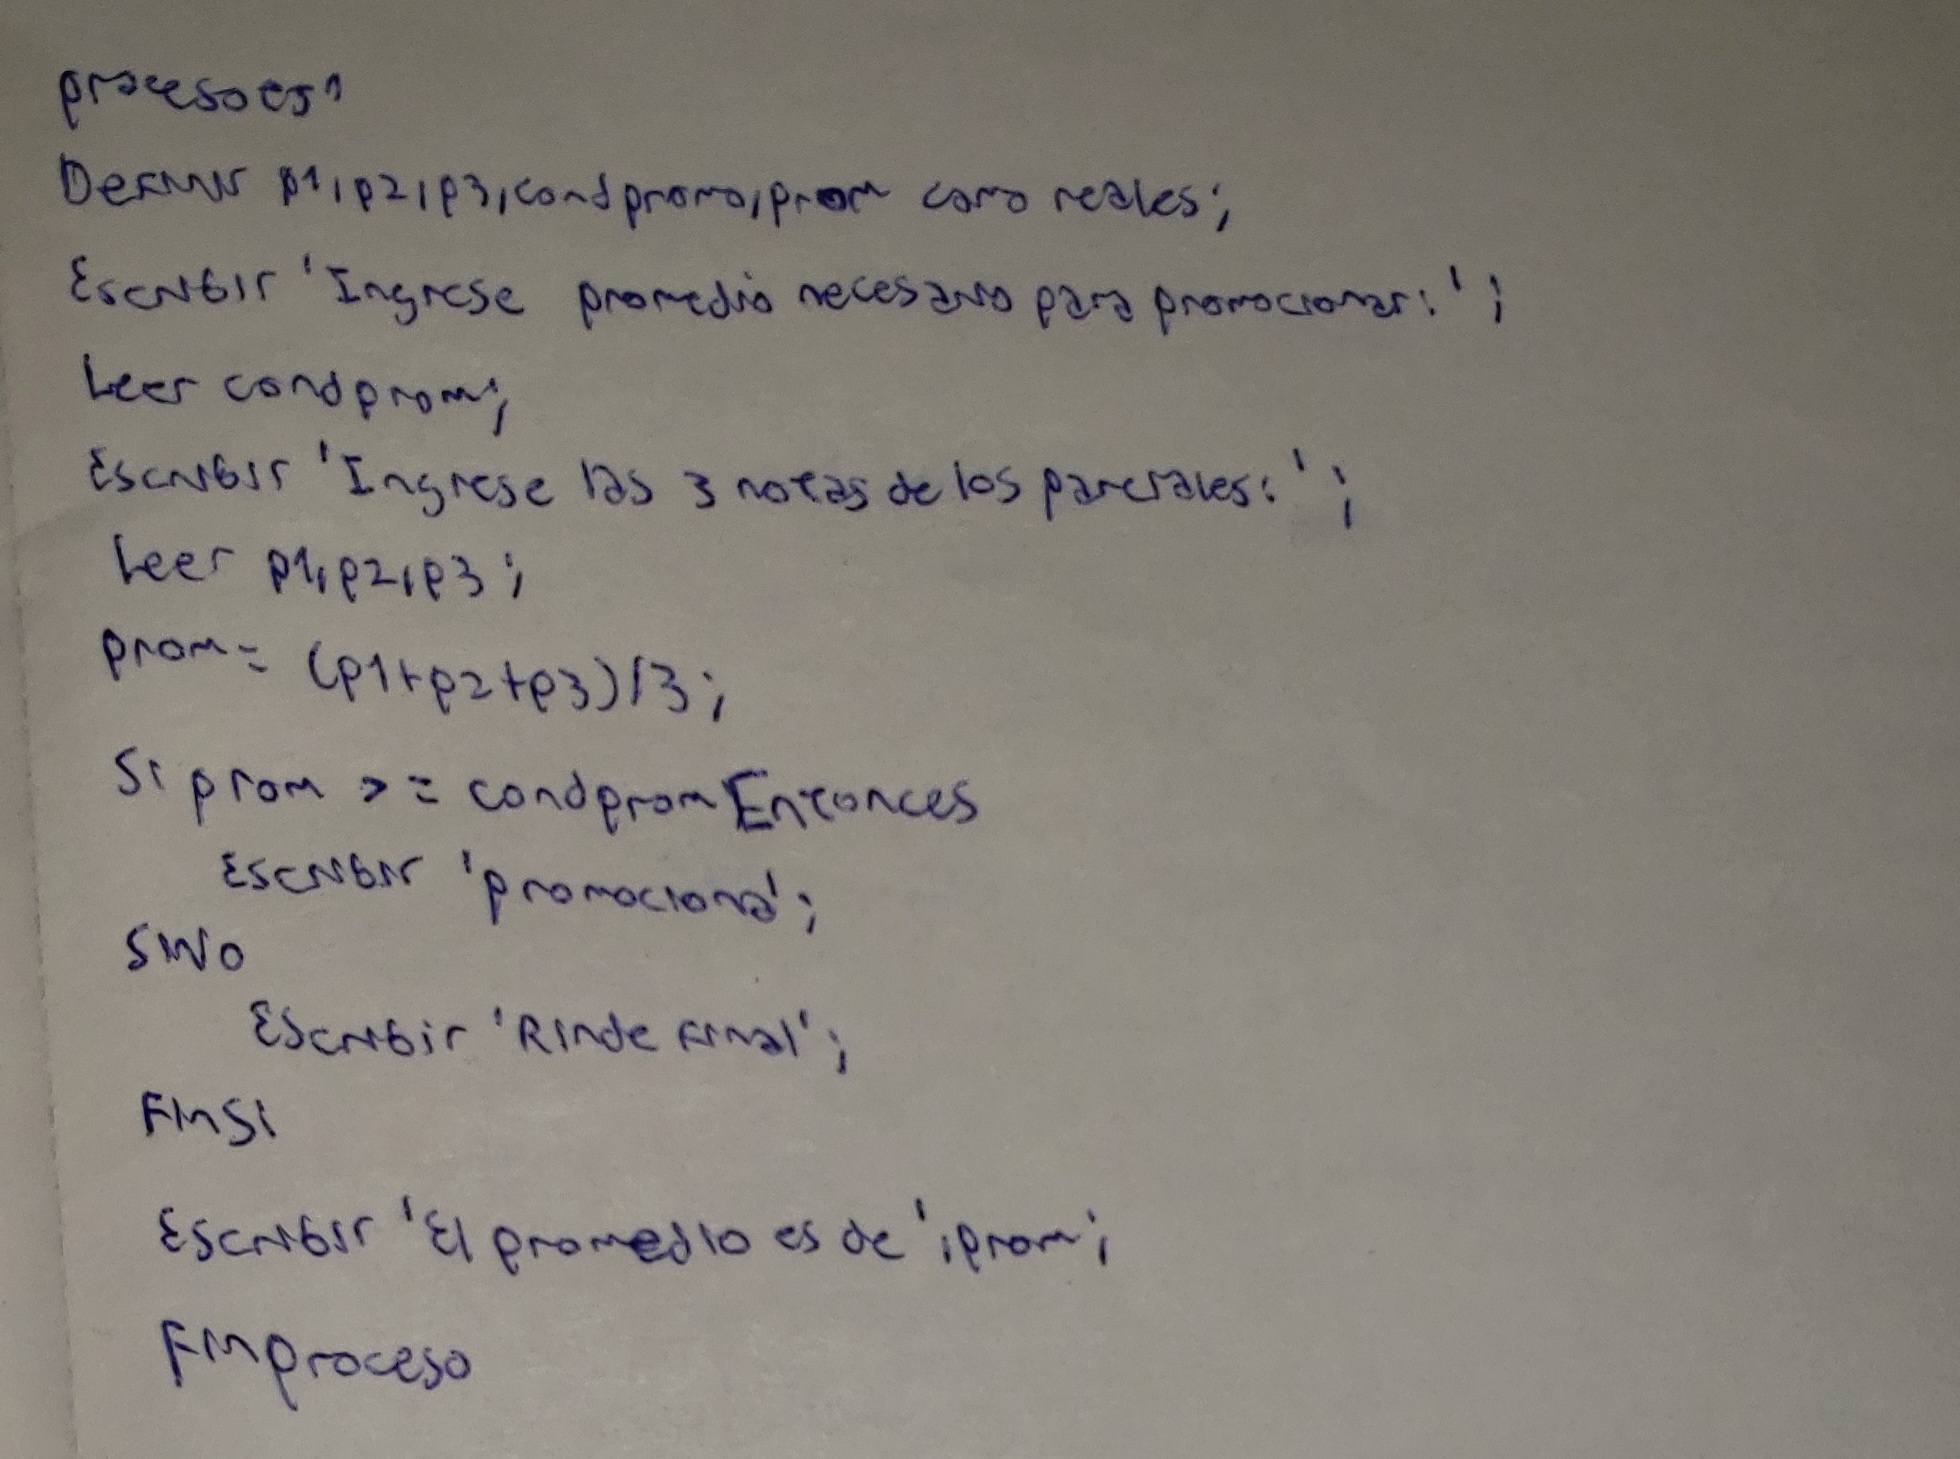 proceso ej1
Definir p1,p2,p3,condpromo,prom como reales;
Escribir 'Ingrese promedio necesario para promocionar:';
Leer condprom;
Escribir 'Ingrese las 3 notas de los parciales:';
Leer p1,p2,p3;
prom= (p1+p2+p3)/3;
Si prom >= condprom Entonces
Escribir 'promociona';
SiNo
Escribir 'Rinde Final';
FinSi
Escribir 'El promedio es de',prom;
Finproceso